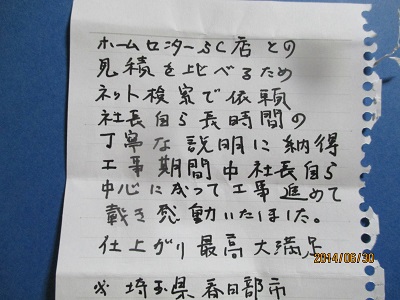 ホームセンターSC店との
見積を比べるため
ネット検索で依頼
社長自ら長時間の
丁寧な説明に納得
工事期間中社長自ら
中心に成って工事進めて
戴き感動いたしました。
仕上がり最高大満足
※埼玉県春日部市
2014/06/30